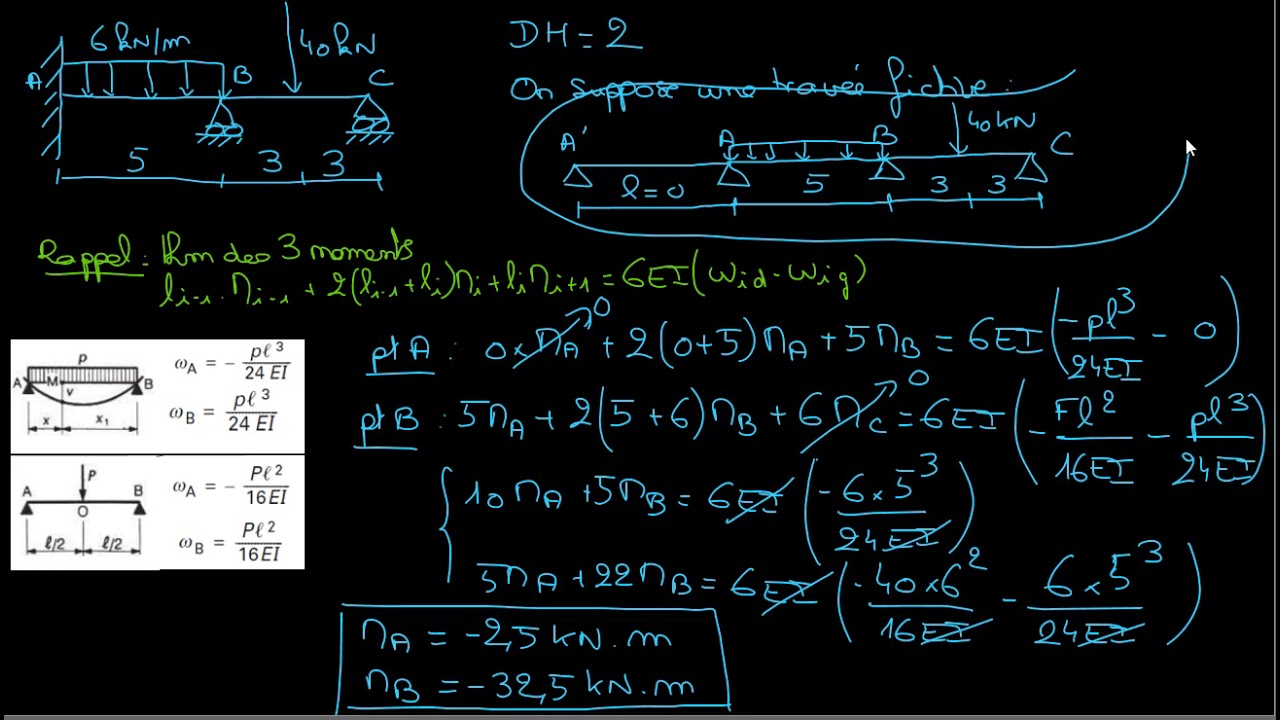 6 kN/m
40kN
A
B
C
5
3
3
DH = 2
On suppose une travée fictive :
A'
A
B
40KN
C
l=0
5
3
3
Rappel : thm des 3 moments
l_{i-1} . M_{i-1} + 2(l_{i-1}+l_i)M_i + l_i M_{i+1} = 6EI(ω_{id} - ω_{ig})
p
A
M
B
v
x
x₁
ω_A = - pℓ³/24 EI
ω_B = pℓ³/24 EI
P
A
B
O
ℓ/2
ℓ/2
ω_A = - Pℓ²/16EI
ω_B = Pℓ²/16EI
pt A : 0×M_A' + 2(0+5)M_A + 5M_B = 6EI(-pl³/24EI - 0)
0
pt B : 5M_A + 2(5+6)M_B + 6M_C = 6EI(-Fl²/16EI - pl³/24EI)
0
10M_A + 5M_B = 6EI(-6×5³/24EI)
5M_A + 22M_B = 6EI(-40×6²/16EI - 6×5³/24EI)
M_A = -2,5 KN.m
M_B = -32,5 KN.m